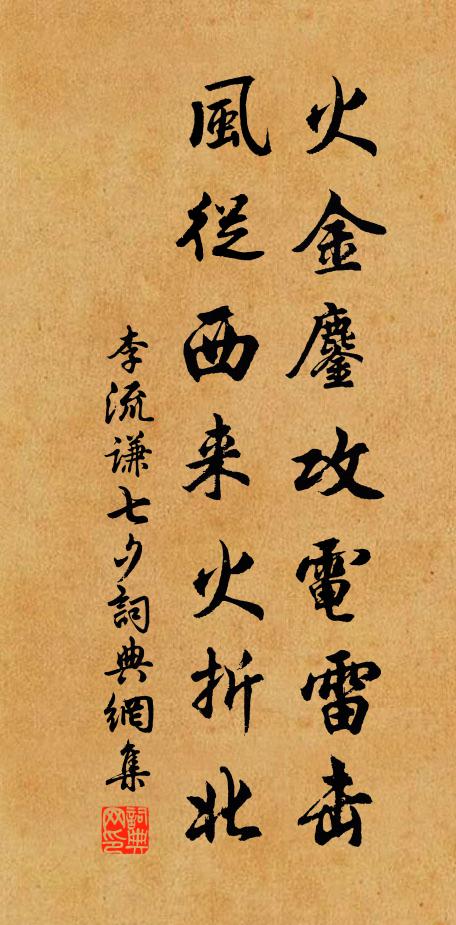 火金鏖攻電雷击
風從西来火折北
李流谦七夕詞典網集
詞典網印